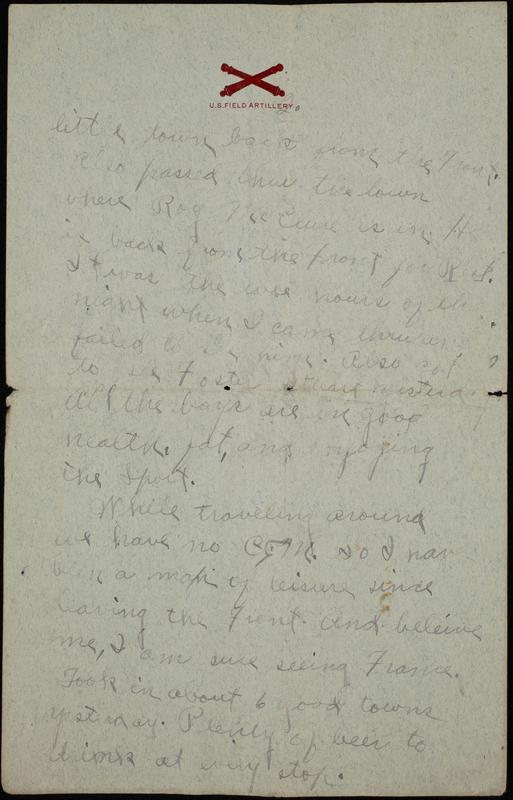 U.S. FIELD ARTILLERY
little town back from the Front.
Also passed thru the town
where Roy McClure is in. He
is back from the front for Rest.
It was the wee hours of the
night when I came thru and
failed to see him. Also got
to see Foster yesterday
All the boys are in good
health, fat, and enjoying
the sport.
While traveling around
we have no So I have
been a man of leisure since
leaving the Front. And beleive
me, I am sure seeing France.
Took in about 6 good towns
yesterday. Plenty of beer to
drink at every stop.